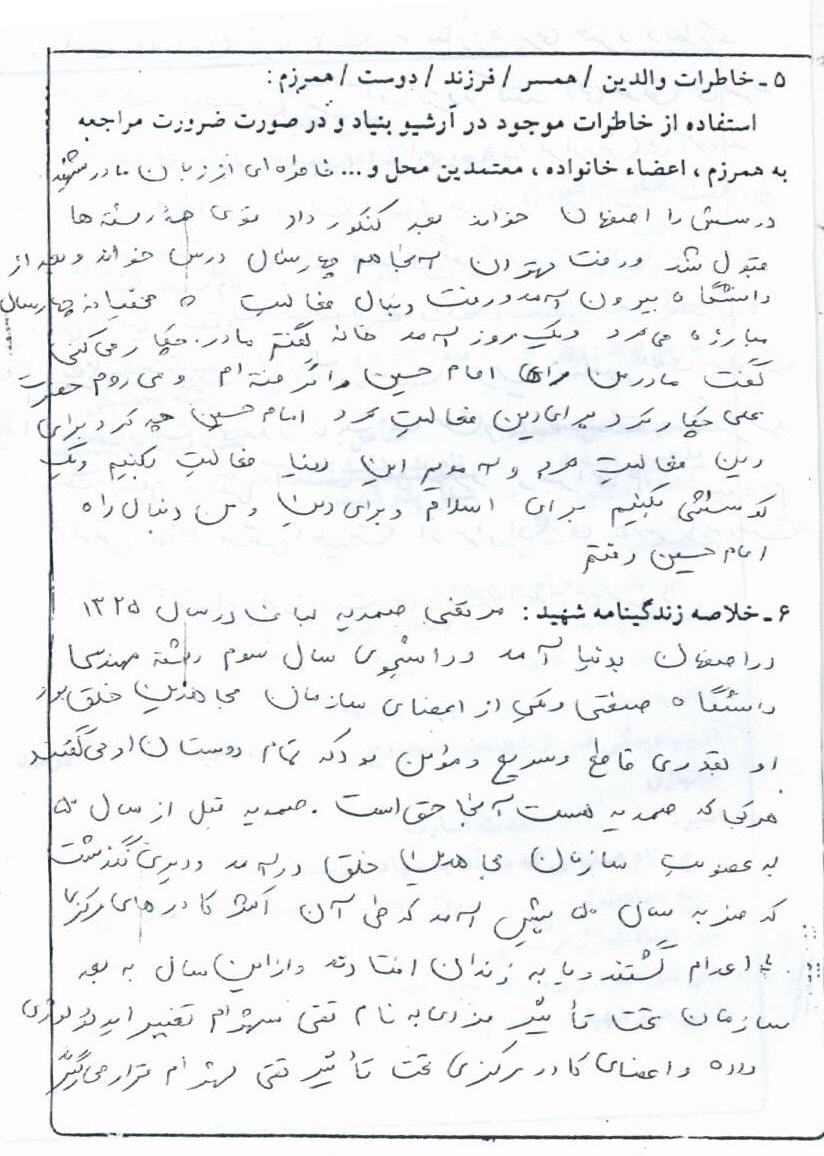 ۵ ـ خاطرات والدین / همسر / فرزند / دوست / همرزم :
استفاده از خاطرات موجود در آرشیو بنیاد و در صورت ضرورت مراجعه
به همرزم ، اعضاء خانواده ، معتمدین محل و ... خاطره‌ای از زبان مادر شهید
درسش را اصفهان خواند بعد کنکور داد توی همه رشته ها
قبول شد و رفت تهران آنجا هم چهار سال درس خواند و بعد از
دانشگاه بیرون آمد و رفت دنبال فعالیت مخفیانه چهار سال
مبارزه می‌کرد و یک روز آمد خانه گفتم مادر چکار می‌کنی
گفت مادر من راه امام حسین را گرفته ام و می روم حضرت
علی چکار کرد برای دین فعالیت کرد امام حسین چه کرد برای
دین فعالیت کرد و آمدیم این دنیا فعالیت بکنیم و یک
کوششی بکنیم برای اسلام و برای دین و من دنبال راه
امام حسین رفتم
۶ ـ خلاصه زندگینامه شهید : مرتضی صمدیه لباف در سال ۱۳۲۵
در اصفهان بدنیا آمد دانشجوی سال سوم رشته مهندسی
دانشگاه صنعتی و یکی از اعضای سازمان مجاهدین خلق بود
او بقدری قاطع و سریع و مؤمن بود که تمام دوستان او می‌گفتند
هر کجا که صمدیه هست آنجا حق است . صمدیه قبل از سال ۵۰
به عضویت سازمان مجاهدین خلق در آمد و دیری نگذشت
که ضربه سال ۵۰ پیش آمد که طی آن اکثر کادرهای مرکزی
اعدام گشتند و یا به زندان افتادند و از این سال به بعد
سازمان تحت تأثیر فردی به نام تقی شهرام تغییر ایدئولوژی
داده و اعضای کادر مرکزی تحت تأثیر تقی شهرام قرار می‌گیرند